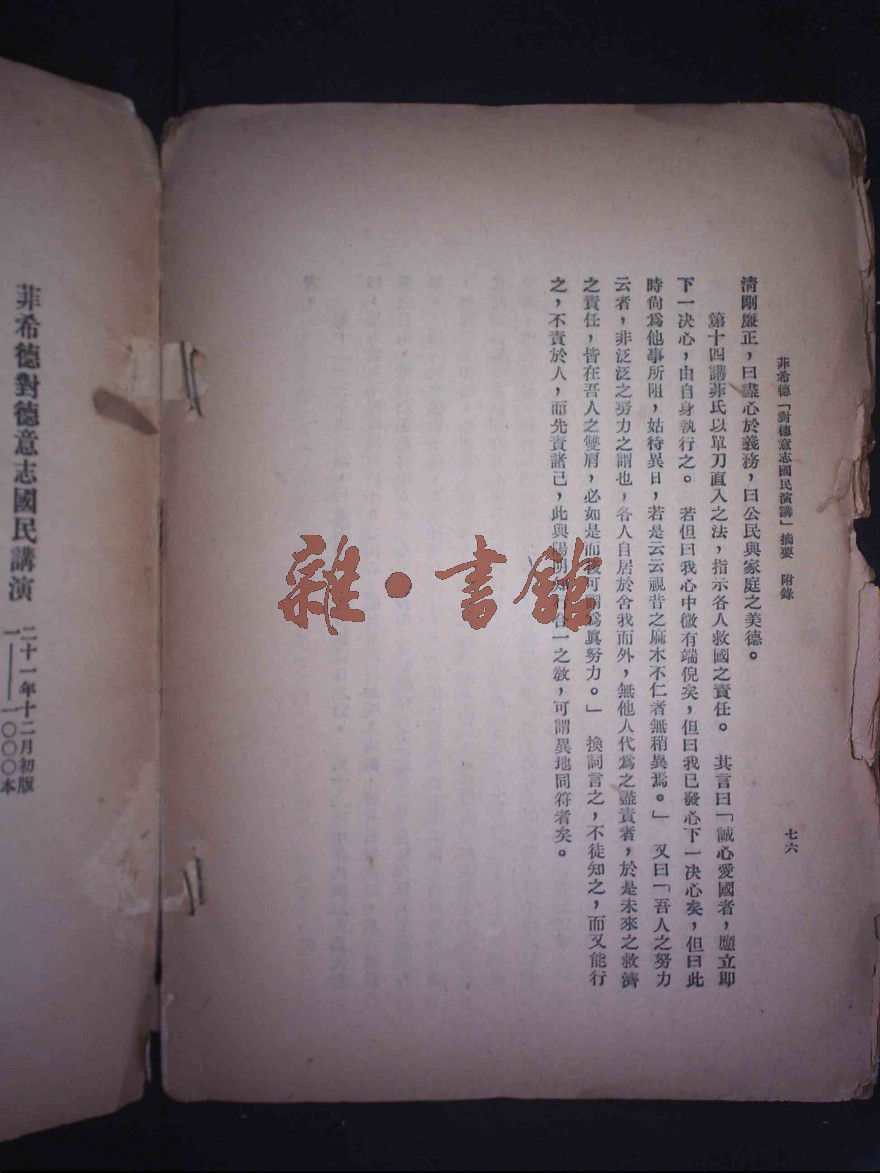 菲希德「對德意志國民演講」摘要　附錄
七六
清剛廉正，曰盡心於義務，曰公民與家庭之美德。
第十四講菲氏以單刀直入之法，指示各人救國之責任。　其言曰「誠心愛國者，應立卽
下一決心，由自身執行之。　若但曰我心中微有端倪矣，但曰我已發心下一決心矣，但曰此
時尙爲他事所阻，姑待異日，若是云云視昔之麻木不仁者無稍異焉。」　又曰「吾人之努力
云者，非泛泛之努力之謂也，各人自居於舍我而外，無他人代爲之盡責者，於是未來之救濟
之責任，皆在吾人之雙肩，必如是而後可謂爲眞努力。」　換詞言之，不徒知之，而又能行
之，不責於人，而先責諸己，此與陽明知行合一之敎，可謂異地同符者矣。
菲希德對德意志國民講演
二十一年十二月初版
一——一〇〇〇本
雜·書館